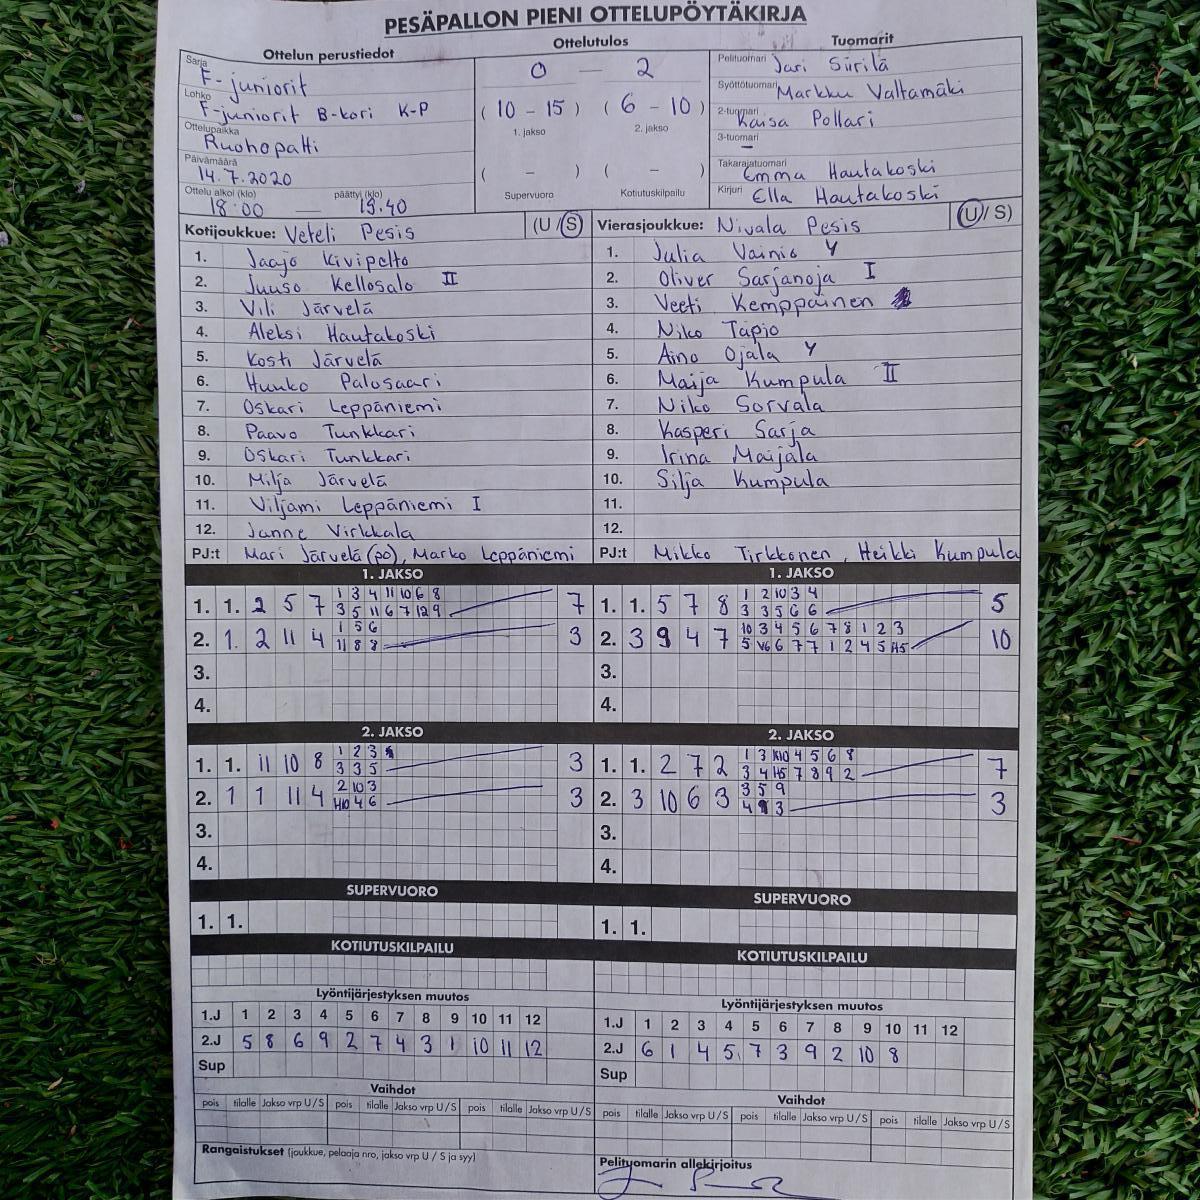 PESÄPALLON PIENI OTTELUPÖYTÄKIRJA
Ottelun perustiedot
Sarja F-juniorit
Lohko F-juniorit B-kori K-P
Ottelupaikka Ruohopatti
Päivämäärä 14.7.2020
Ottelu alkoi (klo) päättyi (klo)
18:00 — 19.40
Ottelutulos
0 — 2
(10 - 15) (6 - 10)
1. jakso 2. jakso
( - ) ( - )
Supervuoro Kotiutuskilpailu
Tuomarit
Pelituomari Jari Siirilä
Syöttötuomari Markku Valtamäki
2-tuomari Kaisa Pollari
3-tuomari —
Takarajatuomari Emma Hautakoski
Kirjuri Ella Hautakoski
Kotijoukkue: Veteli Pesis (U/S)
1. Jaajo Kivipelto
2. Juuso Kellosalo II
3. Vili Järvelä
4. Aleksi Hautakoski
5. Kosti Järvelä
6. Huuko Palosaari
7. Oskari Leppäniemi
8. Paavo Tunkkari
9. Oskari Tunkkari
10. Milja Järvelä
11. Viljami Leppäniemi I
12. Janne Virkkala
PJ:t Mari Järvelä (po), Marko Leppäniemi
Vierasjoukkue: Nivala Pesis (U/S)
1. Julia Vainio Y
2. Oliver Sarjanoja I
3. Veeti Kemppainen
4. Niko Tapio
5. Aino Ojala Y
6. Maija Kumpula II
7. Niko Sorvala
8. Kasperi Sarja
9. Irina Maijala
10. Silja Kumpula
11.
12.
PJ:t Mikko Tirkkonen, Heikki Kumpula
1. JAKSO
1. 1. 2 5 7 1 3 4 11 10 6 8 7
3 5 11 6 7 12 9
2. 1. 2 11 4 1 5 6 3
11 8 8
3.
4.
1. JAKSO
1. 1. 5 7 8 1 2 10 3 4 5
3 3 5 6 6
2. 3 9 4 7 10 3 4 5 6 7 8 1 2 3 10
5 V6 6 7 7 1 2 4 5 H5
3.
4.
2. JAKSO
1. 1. 11 10 8 1 2 3 3
3 3 5
2. 1 1 11 4 2 10 3 3
H10 4 6
3.
4.
2. JAKSO
1. 1. 2 7 2 1 3 K10 4 5 6 8 7
3 4 H5 7 8 9 2
2. 3 10 6 3 3 5 9 3
4 3
3.
4.
SUPERVUORO
1. 1.
SUPERVUORO
1. 1.
KOTIUTUSKILPAILU
KOTIUTUSKILPAILU
Lyöntijärjestyksen muutos
1.J 1 2 3 4 5 6 7 8 9 10 11 12
2.J 5 8 6 9 2 7 4 3 1 10 11 12
Sup
Lyöntijärjestyksen muutos
1.J 1 2 3 4 5 6 7 8 9 10 11 12
2.J 6 1 4 5. 7 3 9 2 10 8
Sup
Vaihdot
pois tilalle Jakso vrp U/S pois tilalle Jakso vrp U/S pois tilalle Jakso vrp U/S
Vaihdot
pois tilalle Jakso vrp U/S pois tilalle Jakso vrp U/S pois tilalle Jakso vrp U/S
Rangaistukset (joukkue, pelaaja nro, jakso vrp U / S ja syy)
Pelituomarin allekirjoitus